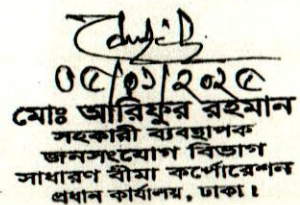 ০৫/০১/২০২৫
মোঃ আরিফুর রহমান
সহকারী ব্যবস্থাপক
জনসংযোগ বিভাগ
সাধারণ বীমা কর্পোরেশন
প্রধান কার্যালয়, ঢাকা।